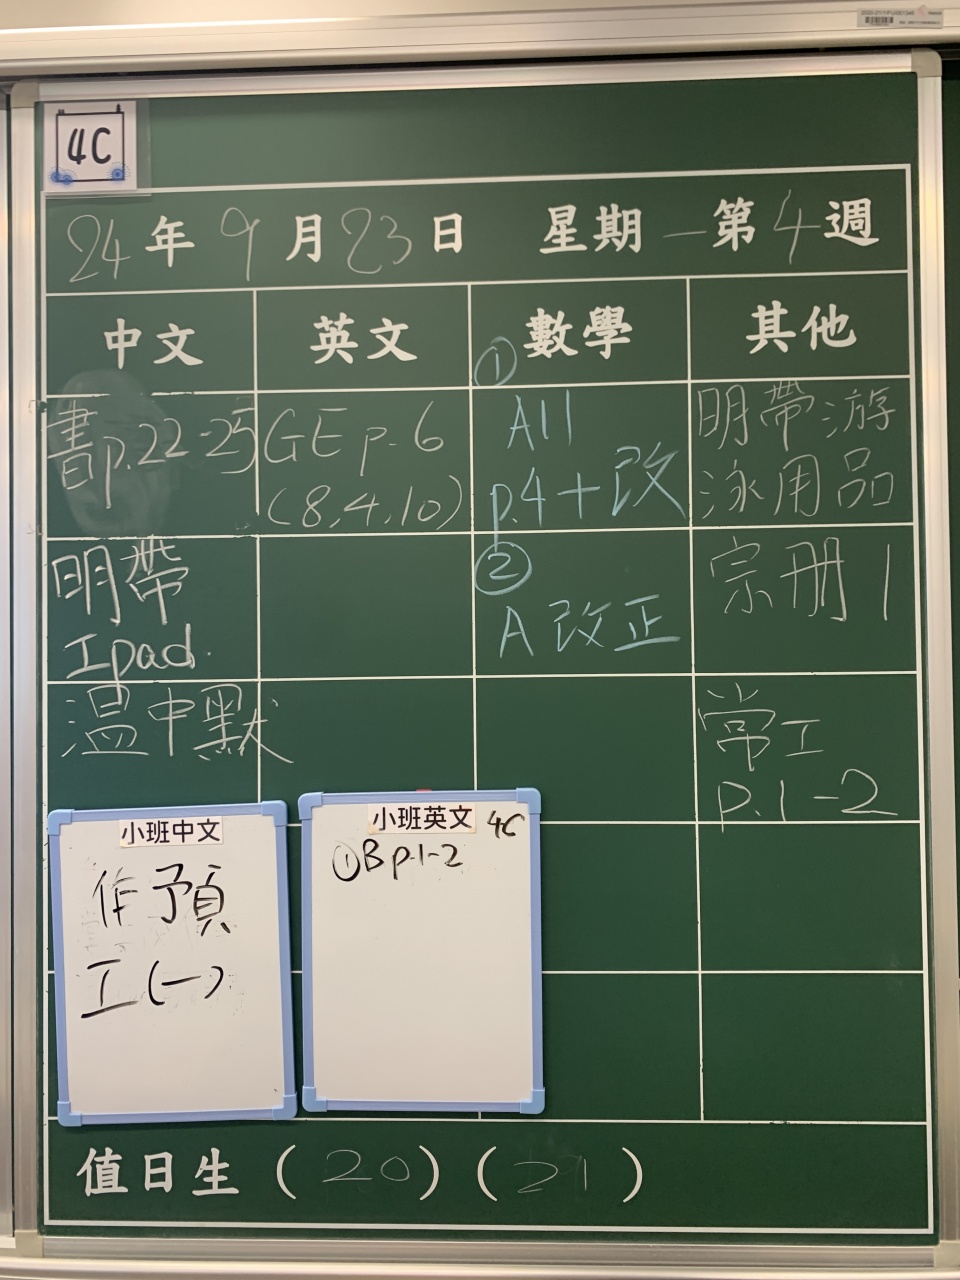 4C
24年9月23日 星期一第4週
中文 英文 數學 其他
書p.22-25
明帶
Ipad.
溫中默
GE p.6
(8,4,10)
①
A11
p.4+改
②
A改正
明帶游
泳用品
宗冊1
常工
p.1-2
小班中文
作預
工(一)
小班英文 4C
①B p.1-2
值日生 (20)(21)